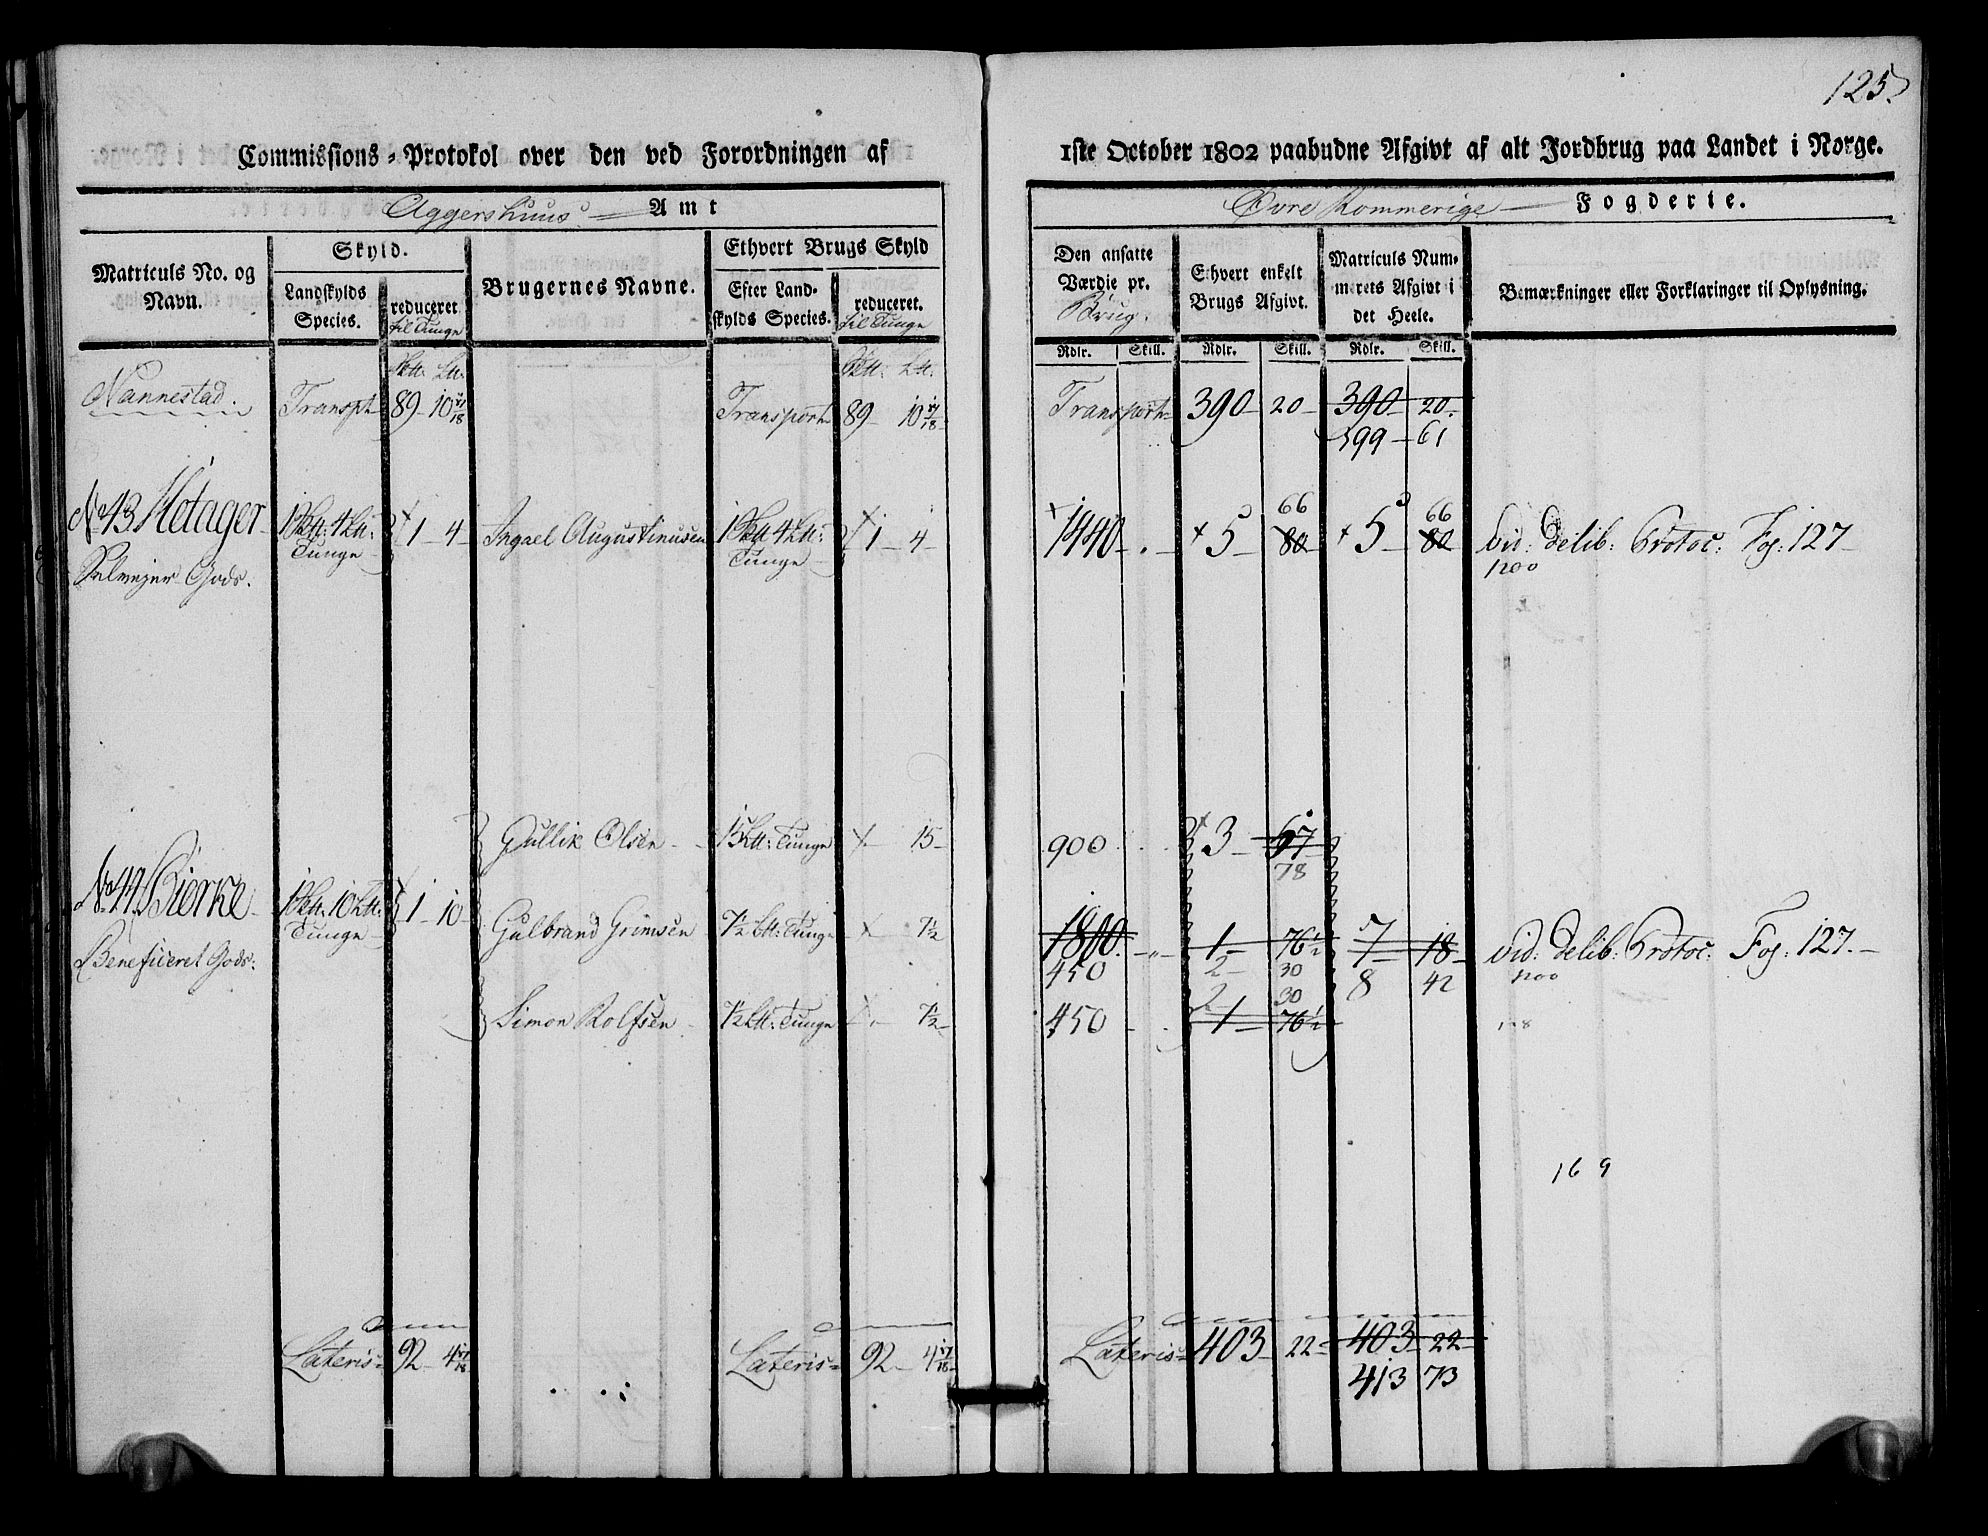 125.
Commissions-Protokol over den ved Forordningen af 1ste October 1802 paabudne Afgivt af alt Jordbrug paa Landet i Norge.
Aggershuus Amt
Øvre Rommerige Fogderie.
Matriculs No. og Navn.
Skyld.
Landskylds Species.
reduceret til Tunge
Brugernes Navne.
Ethvert Brugs Skyld
Efter Landskylds Species.
reduceret. til Tunge
Den ansatte Værdie pr. Brug.
Ethvert enkelt Brugs Afgivt.
Matriculs Nummerets Afgivt i det Heele.
Bemærkninger eller Forklaringer til Oplysning.
Rdlr. Skill. Rdlr. Skill. Rdlr. Skill.
Nannestad. Transpt 89 - 10 17/18 Transport 89 - 10 17/18 Transport 390 - 20 - 390 - 20 -
399 - 61
No 43 Holager 1 4 Tunge 1 - 4 - Ingael Augustinusen 1 4 Tunge 1 - 4 - 1440 - . - 5 - 80 66 5 - 80 66 Vid: Delib: Protoc: Foj: 127 -
Selveyer Gods.
1200
Gullik Olsen - 15 Tunge 15 - 900 3 - 67
78
No 44 Bierke 1 10 Tunge 1 - 10 - Gulbrand Grimsen 7½ Tunge 7½ 1800 1 - 76½ 7 - 18 - Vid: Delib: Protoc: Foj: 127. -
Beneficeret Gods.
450 2 - 30 8 42 1200
2 - 30
Simon Rolfsen 7½ Tunge 7½ 450 1 - 76½
16 9
Lateris 92 - 4 17/18 Lateris 92 - 4 17/18 Lateris 403 - 22 403 - 22 -
413 73